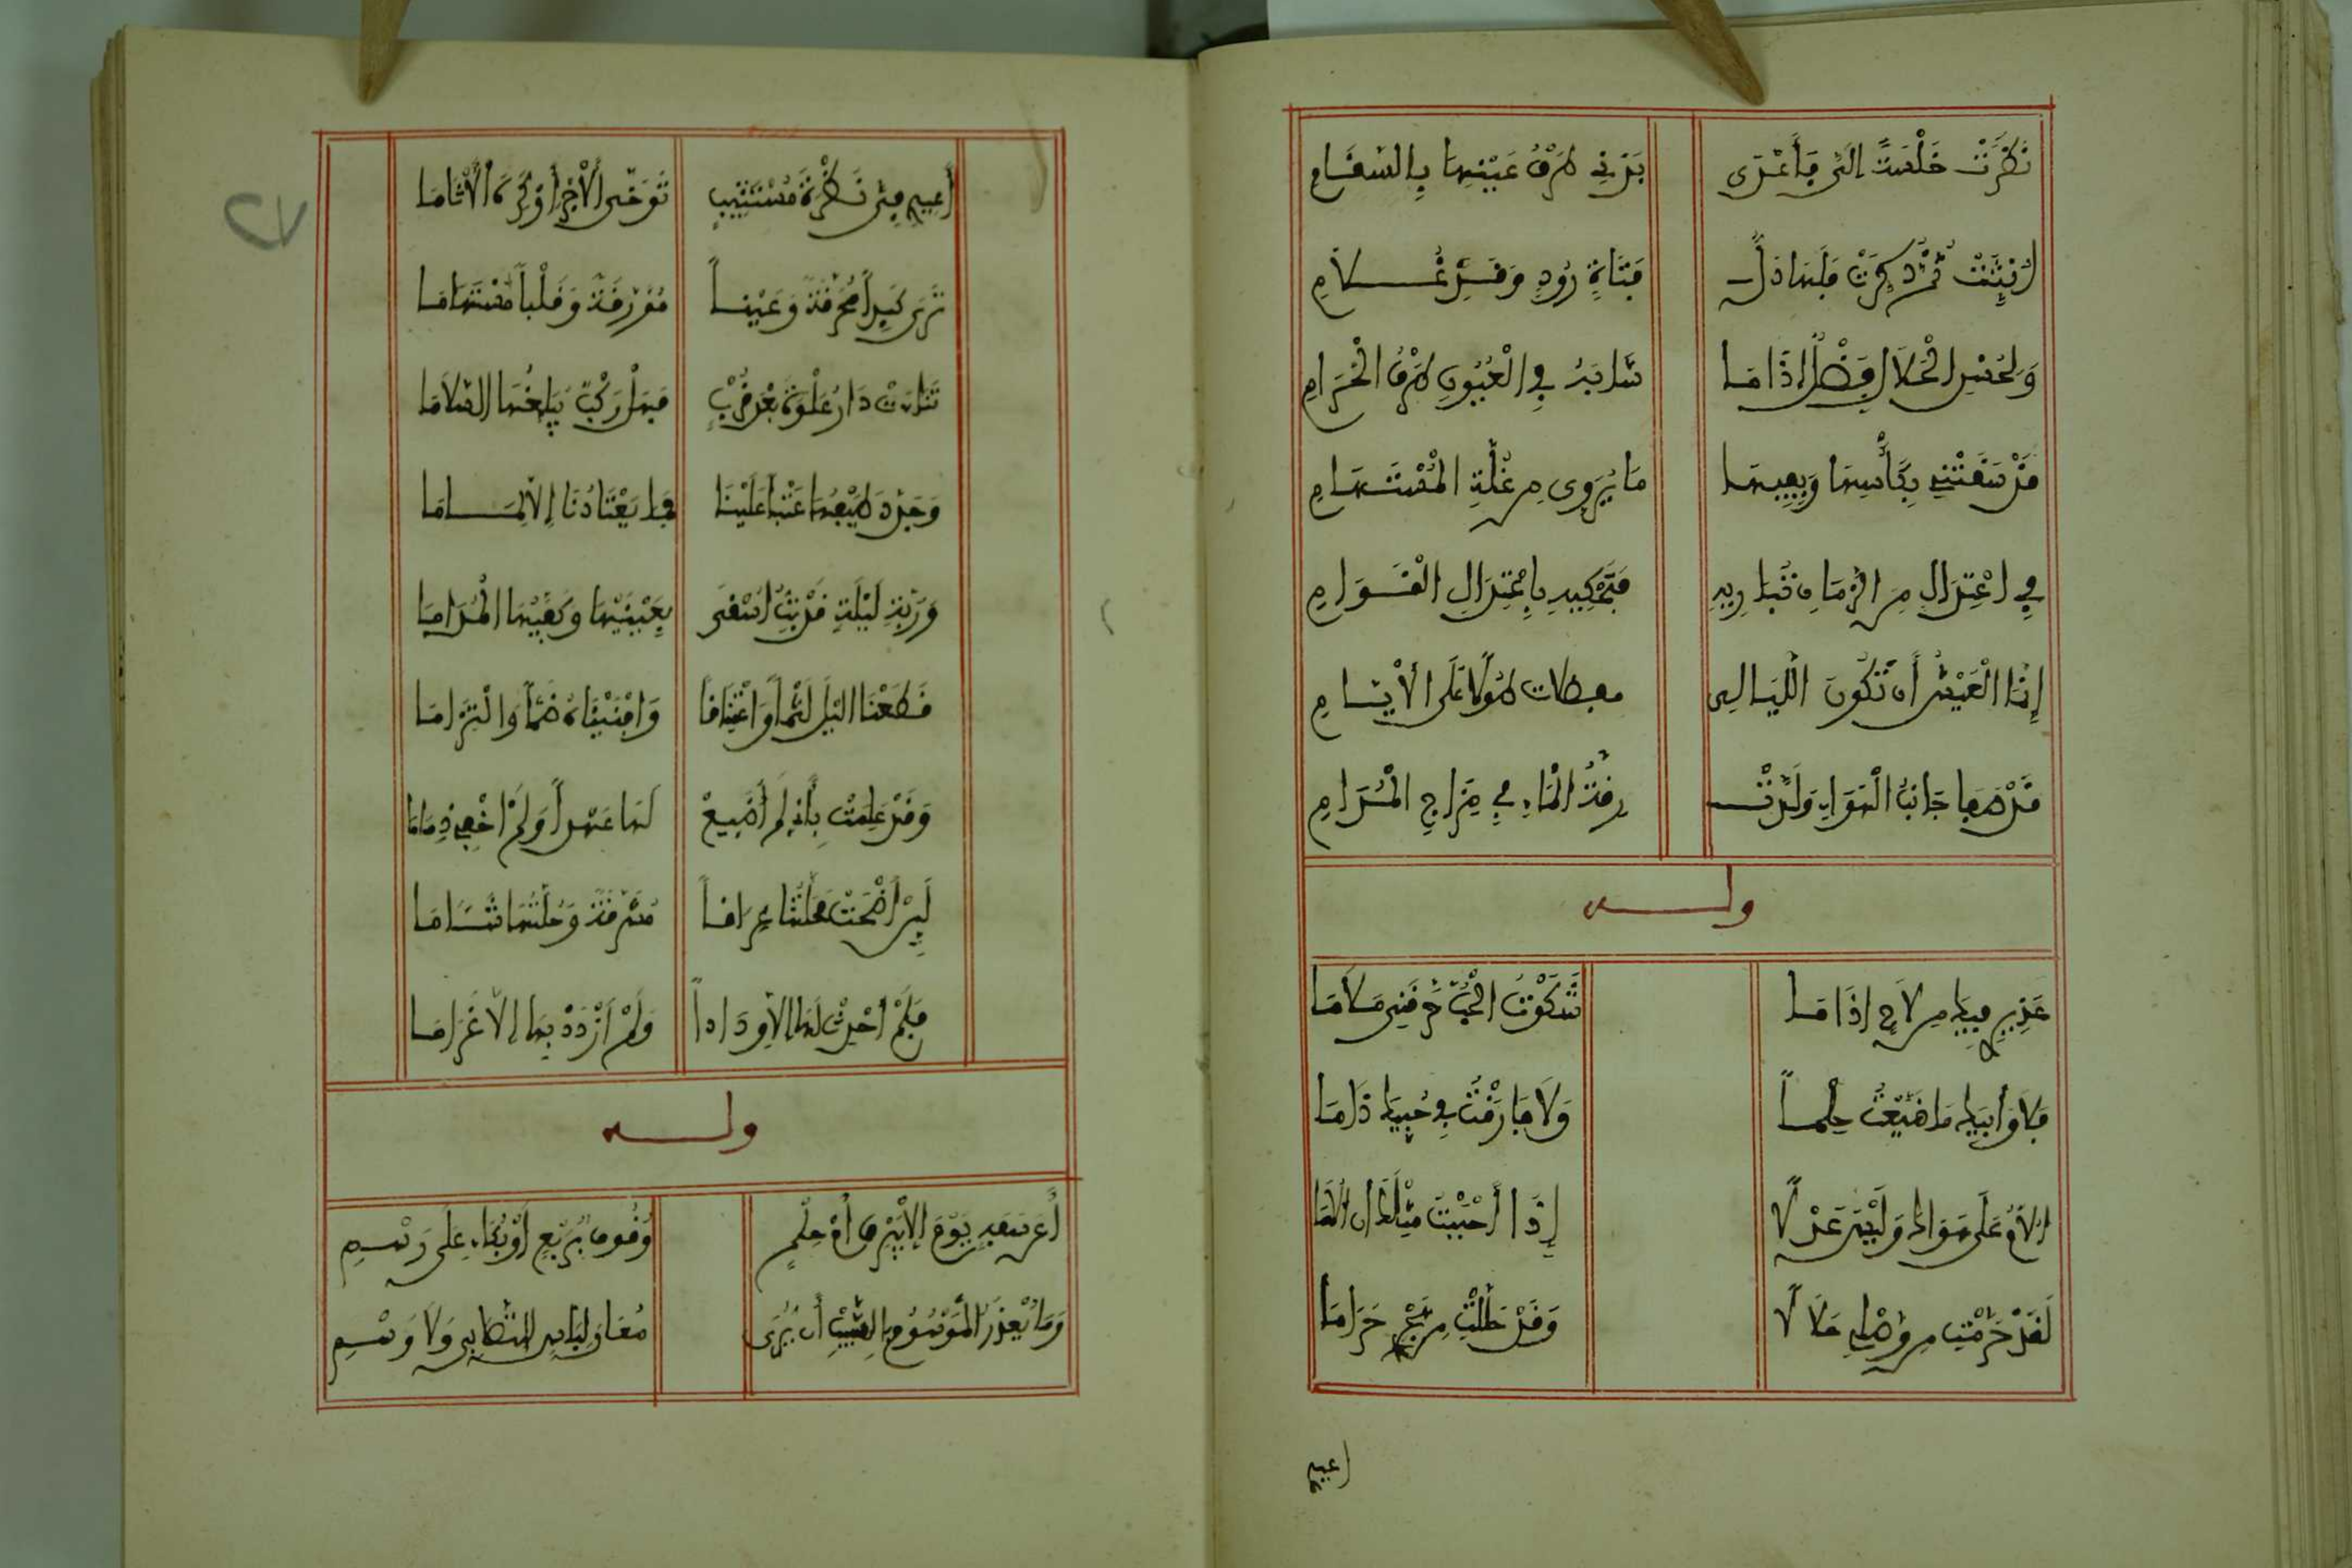 نَظَرَتْ خَلْسَةً إِلَيَّ فَأَعْدَى بَدَنِي طَرْفُ عَيْنِهَا بِالسَّقَامِ
أُنِّثَتْ ثُمَّ ذُكِّرَتْ فَلَهَا دَلُّ فَتَاةٍ رُودٍ وَقَدُّ غُلَامِ
وَلِحُسْنِ الْحَلَالِ فَضْلٌ إِذَا مَا شَابَهُ فِي الْعُيُونِ طَرْفُ الْحَرَامِ
قَدْ سَقَتْنِي بِكَأْسِهَا وَبِفِيهَا مَا يُرَوِّي مِنْ غُلَّةِ الْمُسْتَهَامِ
فِي اعْتِدَالٍ مِنَ الزَّمَانِ تُبَارِيهِ فَتَحْكِيهِ بِاعْتِدَالِ الْقَوَامِ
إِنَّمَا الْعَيْشُ أَنْ تَكُونَ اللَّيَالِي مفضلات طُولًا عَلَى الْأَيَّامِ
قَدْ صَفَا جَانِبُ الْهَوَاءِ وَلَذَّتْ رِقَّةُ الْمَاءِ فِي مِزَاجِ الْمُدَامِ
وله
عَذِيرِي فِيكَ مِنْ لَاحٍ إِذَا مَا شَكَوْتُ الْحُبَّ حَرَّقَنِي مَلَامَا
فَلَا وَأَبِيكَ مَا ضَيَّعْتُ حِلْمًا وَلَا قَارَفْتُ فِي حُبِّيكَ ذَامَا
أُلَامُ عَلَى هَوَاكَ وَلَيْسَ عَدْلًا إِذَا أَحْبَبْتُ مِثْلَكَ أَنْ أُلَامَا
لَقَدْ حَرَّمْتِ مِنْ وَصْلِي حَلَالًا وَقَدْ حَلَّلْتِ مِنْ هَجْرِي حَرَامَا
اعيدي
أَعِيدِي فِيَّ نَظْرَةَ مُسْتَثِيبٍ تَوَخَّى الْأَجْرَ أَوْ كَرِهَ الْأَثَامَا
تَرَيْ كَبِدًا مُحَرَّقَةً وَعَيْنًا مُؤَرَّقَةً وَقَلْبًا مُسْتَهَامَا
تَنَاءَتْ دَارُ عَلْوَةَ بَعْدَ قُرْبٍ فَهَلْ رَكْبٌ يُبَلِّغُهَا السَّلَامَا
وَجَدَّدَ طَيْفُهَا عَتْبًا عَلَيْنَا فَمَا يَعْتَادُنَا إِلَّا لِمَامَا
وَرُبَّةَ لَيْلَةٍ قَدْ بِتُّ أُسْقَى بِعَيْنَيْهَا وَكَفَّيْهَا الْمُدَامَا
قَطَعْنَا اللَّيْلَ لَثْمًا وَاعْتِنَاقًا وَأَفْنَيْنَاهُ ضَمًّا وَالْتِزَامَا
وَقَدْ عَلِمَتْ بِأَنِّي لَمْ أُضَيِّعْ لَهَا عَهْدًا وَلَمْ أَخْفِرْ ذِمَامَا
لَئِنْ أَضْحَتْ مَحَلَّتُنَا عِرَاقًا مُشَرِّقَةً وَحِلَّتُهَا شَآمَا
فَلَمْ أُحْدِثْ لَهَا إِلَّا وِدَادًا وَلَمْ أَزْدَدْ بِهَا إِلَّا غَرَامَا
وله
أَعَنْ سَفَهٍ يَوْمَ الْأُبَيْرِقِ أَمْ حِلْمٍ وُقُوفٌ بِرَبْعٍ أَوْ بُكَاءٌ عَلَى رَسْمِ
وَمَا يُعْذَرُ الْمَوْسُومُ بِالشَّيْبِ أَنْ يُرَى مُعَارَ لِبَاسٍ لِلتَّصَابِي وَلَا وَسْمِ